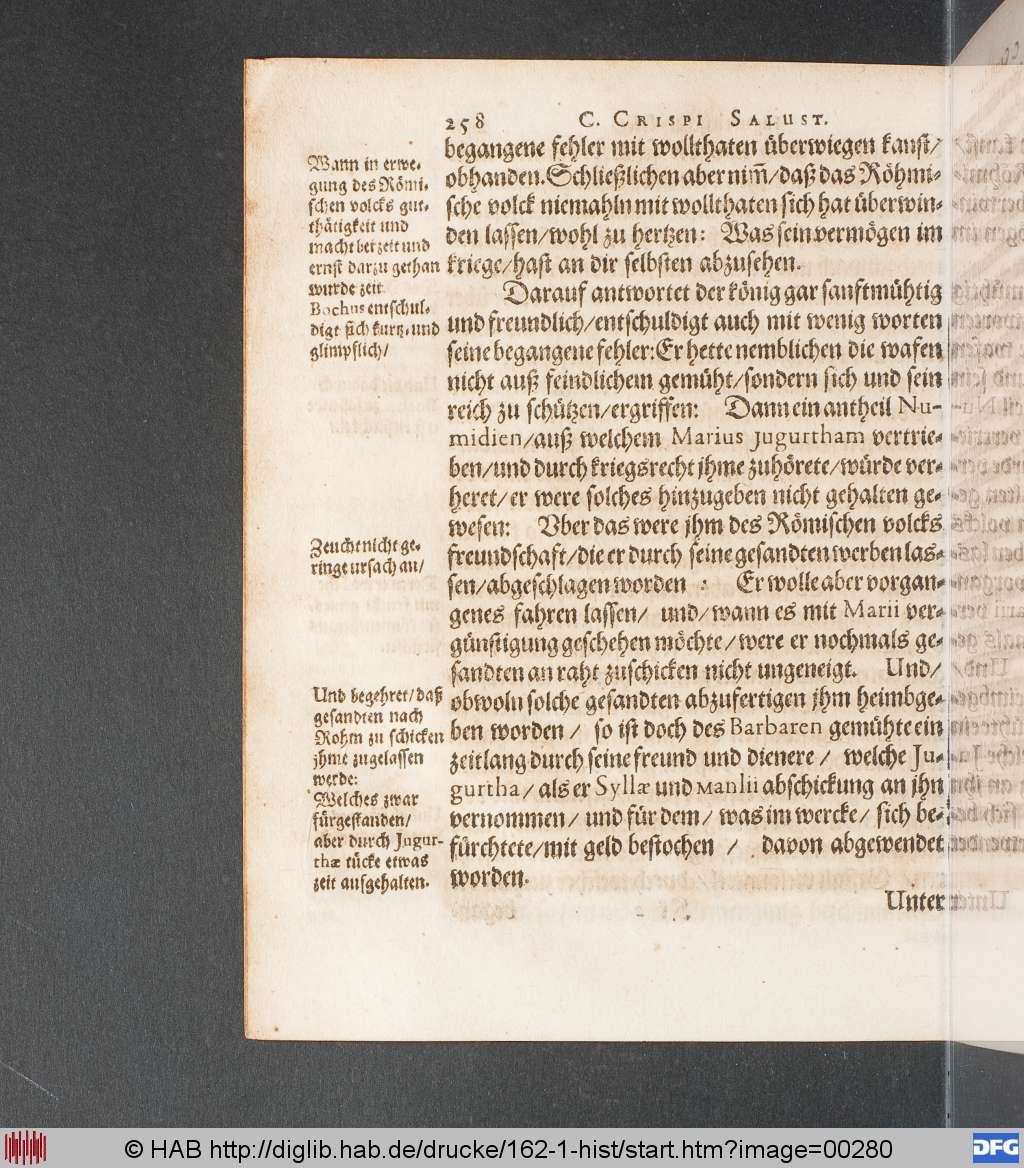 258 C. CRISPI SALUST.
begangene fehler mit wollthaten überwiegen kanst/
obhanden. Schließlichen aber nim̄/ daß das Röhmi-
sche volck niemahln mit wollthaten sich hat überwin-
den lassen/ wohl zu hertzen: Was sein vermögen im
kriege/ hast an dir selbsten abzusehen.
Darauf antwortet der könig gar sanftmühtig
und freundlich/ entschuldigt auch mit wenig worten
seine begangene fehler: Er hette nemblichen die wafen
nicht auß feindlichem gemüht/ sondern sich und sein
reich zu schützen/ ergriffen: Dann ein antheil Nu-
midien/ auß welchem Marius Jugurtham vertrie-
ben/ und durch kriegsrecht jhme zuhörete/ würde ver-
heret/ er were solches hinzugeben nicht gehalten ge-
wesen: Vber das were jhm des Römischen volcks
freundschaft/ die er durch seine gesandten werben las-
sen/ abgeschlagen worden: Er wolle aber vorgan-
genes fahren lassen/ und/ wann es mit Marii ver-
günstigung geschehen möchte/ were er nochmals ge-
sandten an raht zuschicken nicht ungeneigt. Und/
obwoln solche gesandten abzufertigen jhm heimbge-
ben worden/ so ist doch des Barbaren gemühte ein
zeitlang durch seine freund und dienere/ welche Ju-
gurtha/ als er Syllæ und Manlii abschickung an jhn
vernommen/ und für dem/ was im wercke/ sich be-
fürchtete/ mit geld bestochen/ davon abgewendet
worden.
Unter
Wann in erwe-
gung des Römi-
schen volcks gut-
thätigkeit und
macht bei zeit und
ernst darzu gethan
wurde zeit.
Bochus entschul-
digt sich kurtz und
glimpflich/
Zeucht nicht ge-
ringe ursach an/
Und begehret/ daß
gesandten nach
Rohm zu schicken
jhme zugelassen
werde:
Welches zwar
fürgestanden/
aber durch Jugur-
thæ tücke etwas
zeit aufgehalten.
© HAB http://diglib.hab.de/drucke/162-1-hist/start.htm?image=00280
DFG